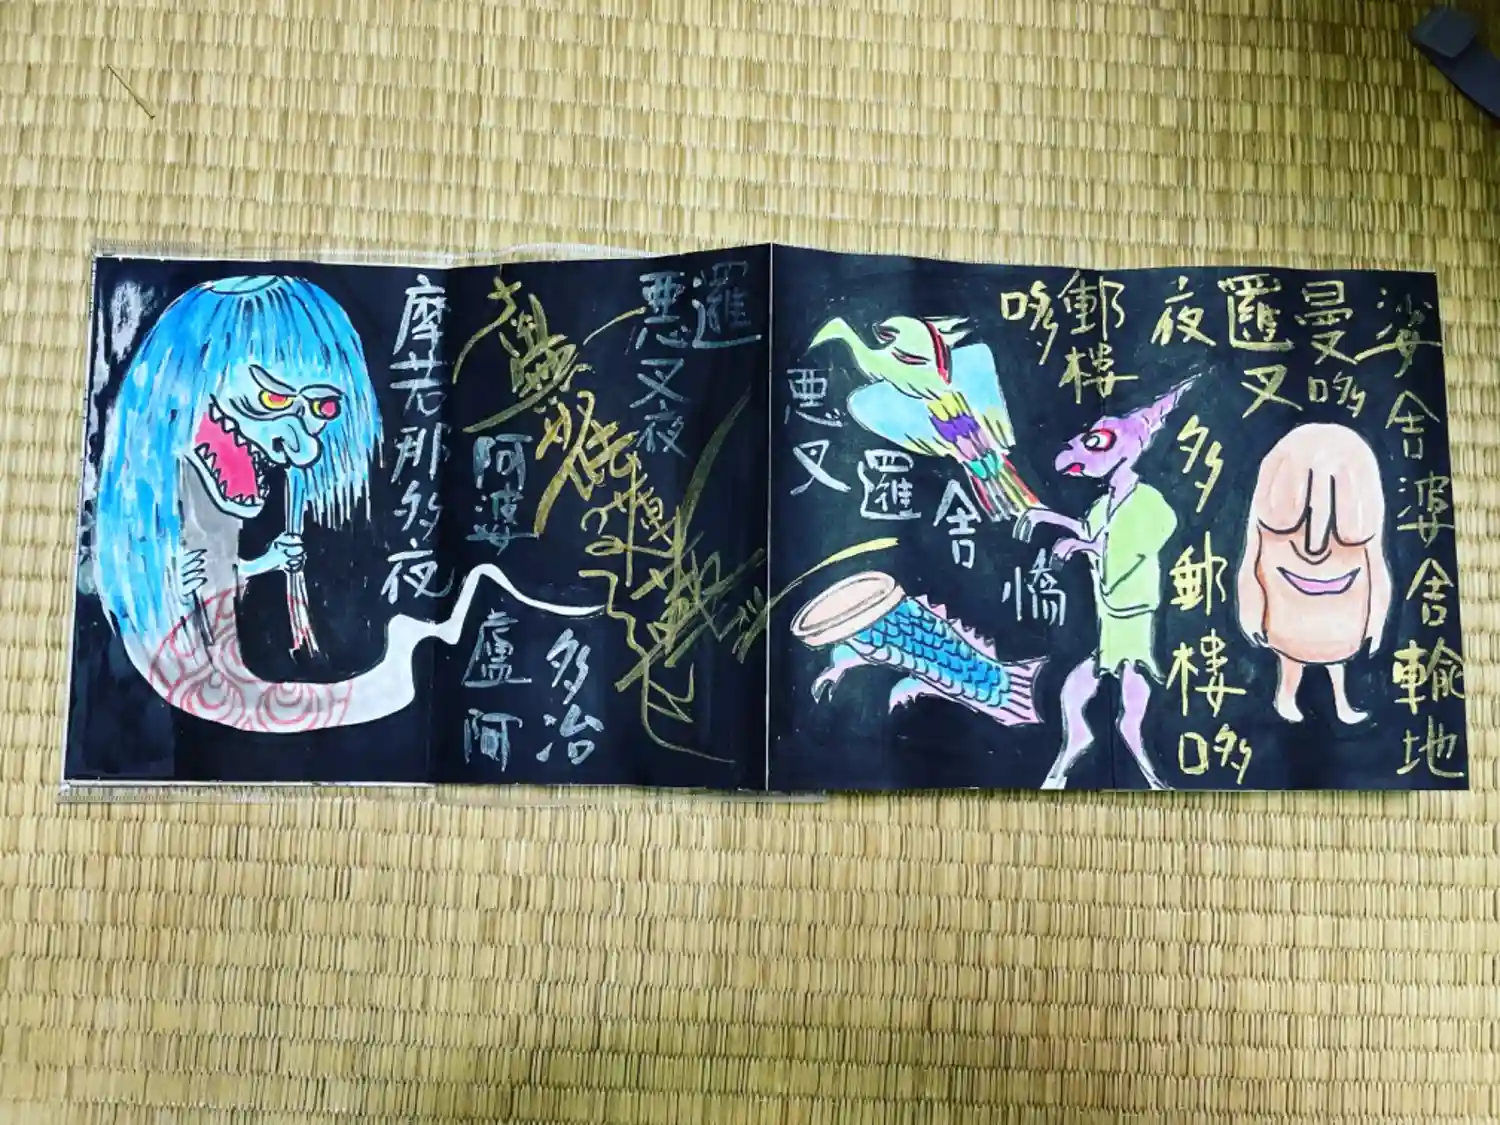 婆舍婆舍輸地
曼哆
邏叉
夜
郵樓
哆
多郵樓哆
憍
舍
邏
悪叉
邏
悪叉夜
多冶
阿婆
盧阿
摩若那多夜